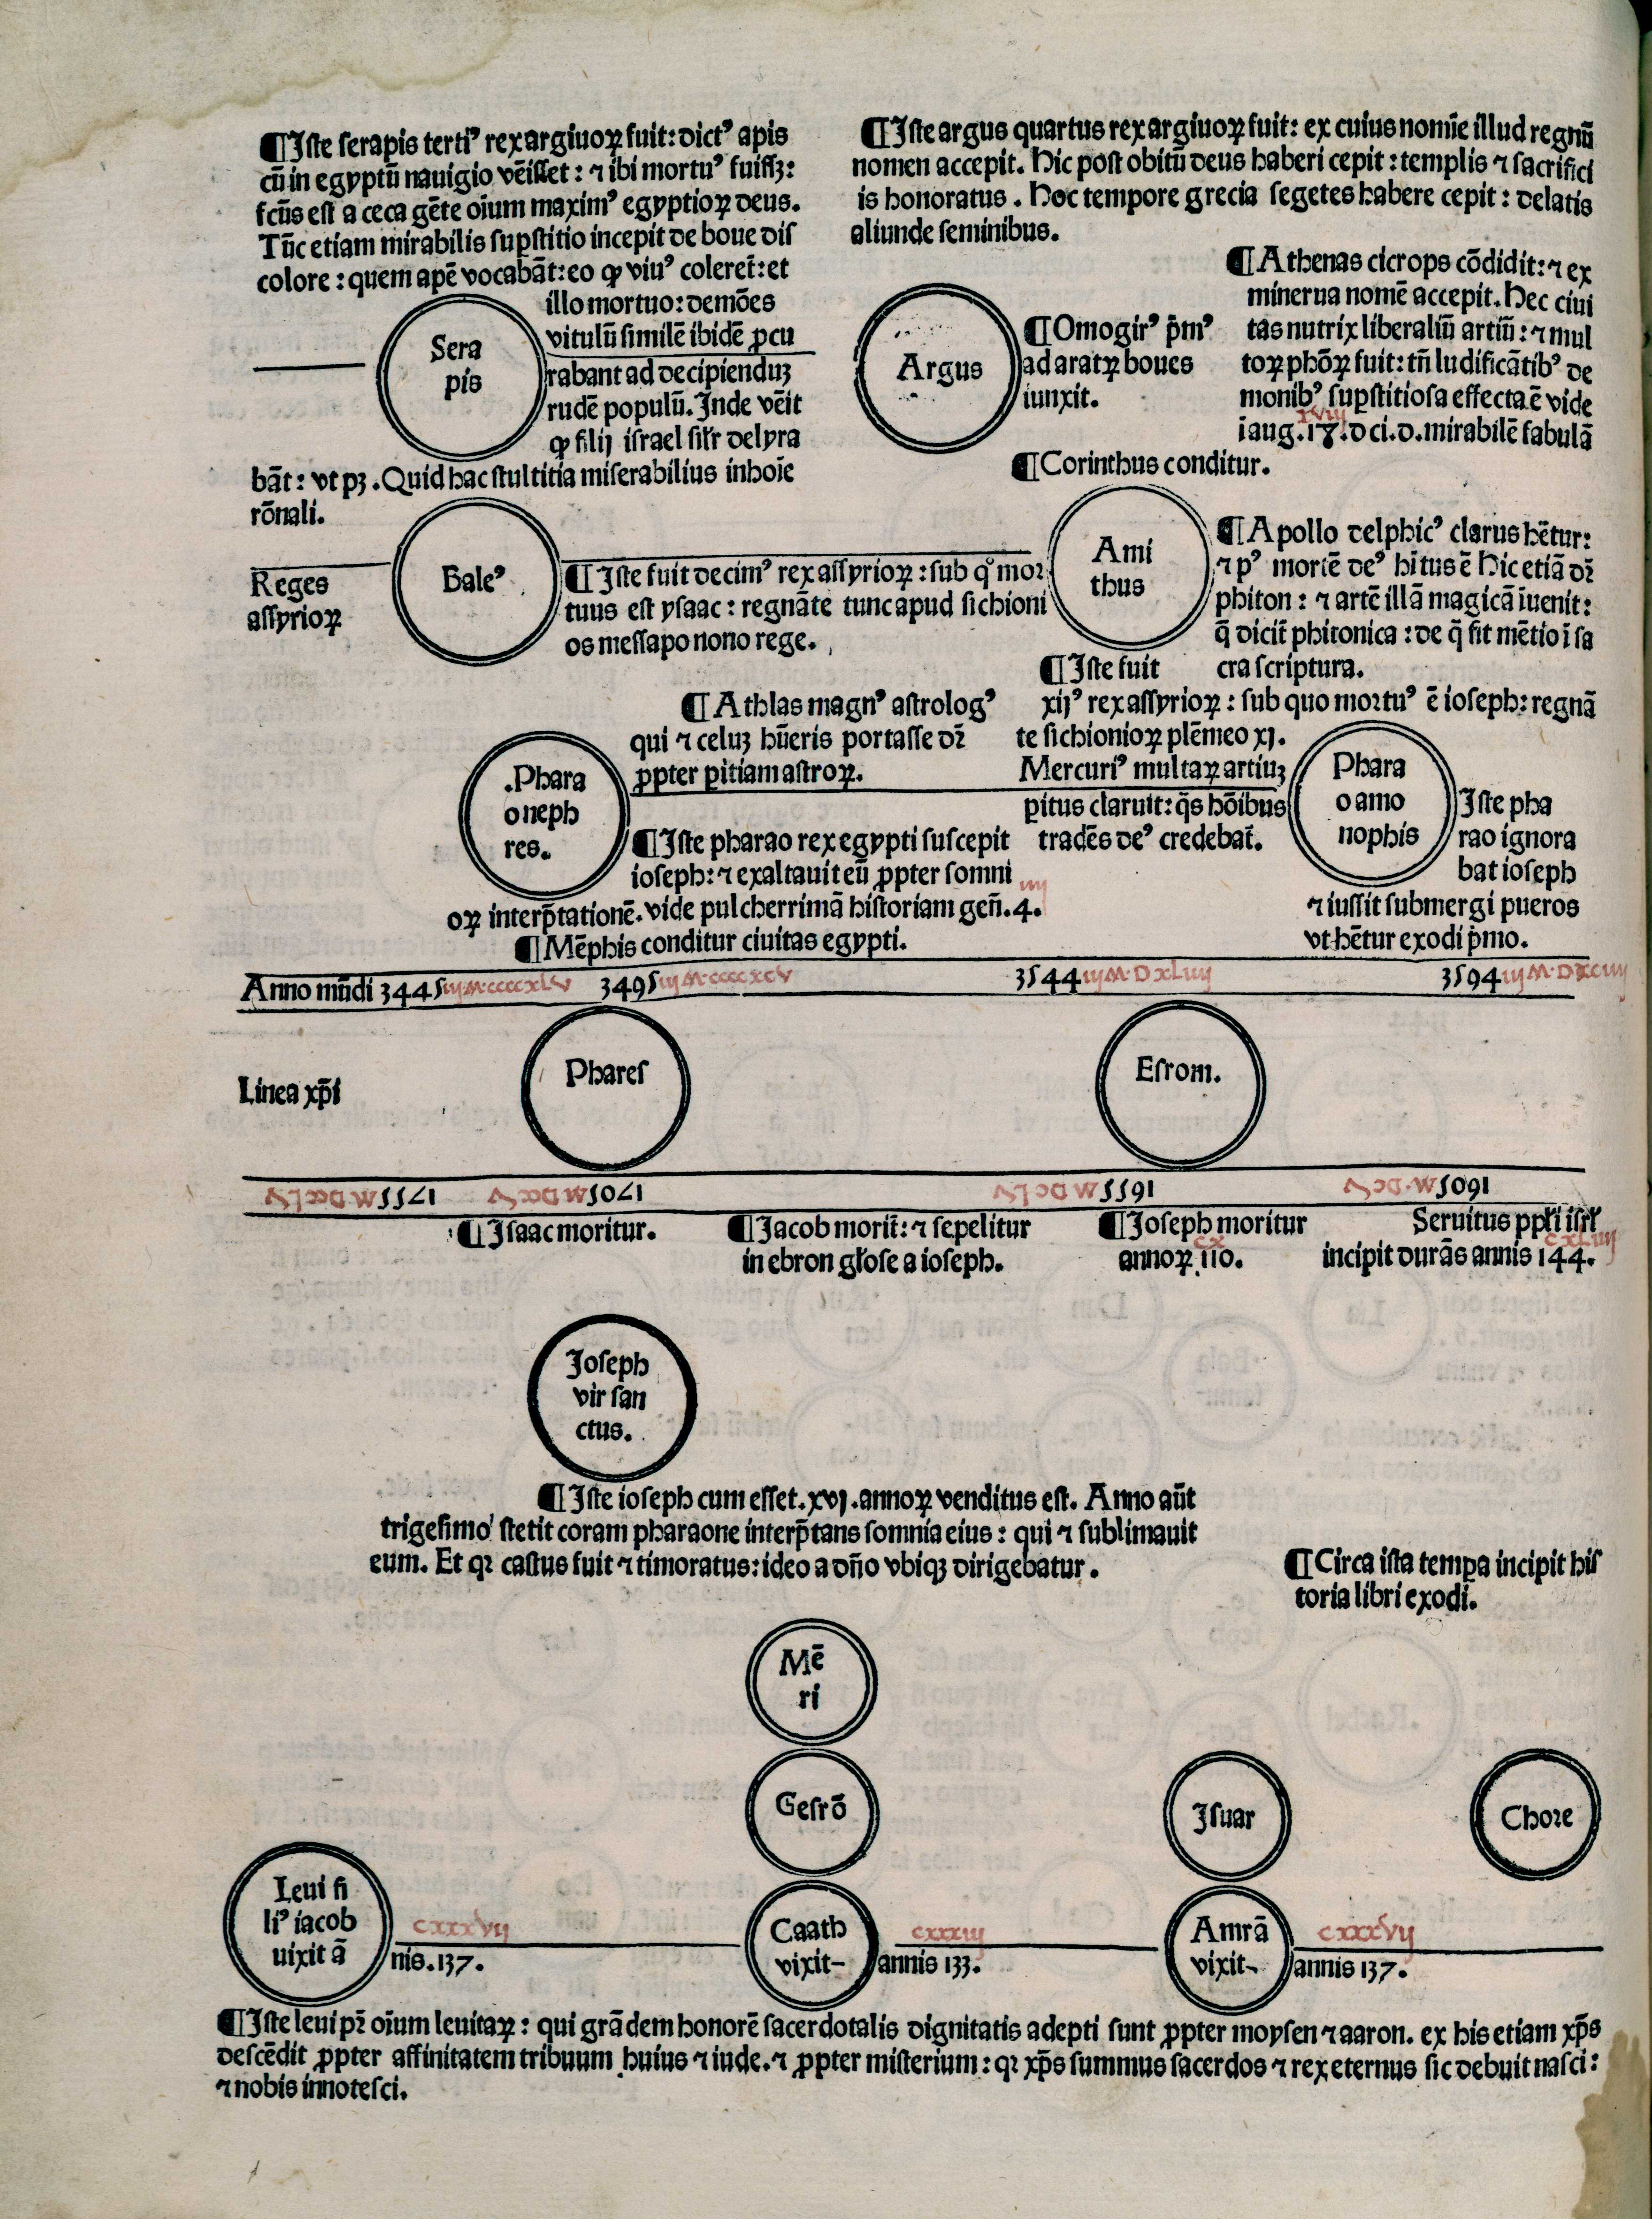 ¶Iste serapis terti᾽ rex argiuoꝝ fuit: dict᾽ apis
cū in egyptū nauigio vēisset: ⁊ ibi mortu᾽ fuissꝫ:
fcūs est a ceca gēte oīum maxim᾽ egyptioꝝ deus.
Tūc etiam mirabilis suꝑstitio incepit de boue dis
colore: quem apē vocabāt: eo ꝙ viu᾽ coleret̄: et
illo mortuo: demōes
vitulū similē ibidē ꝓcu
rabant ad decipienduꝫ
rudē populū. Inde vēit
ꝙ filij israel sil̄r delyra
bāt: vt pꝫ. Quid hac stultitia miserabilius in hoīe
rōnali.
Sera
pis
¶Iste argus quartus rex argiuoꝝ fuit: ex cuius nomīe illud regnū
nomen accepit. Hic post obitū deus haberi cepit: templis ⁊ sacrifici
is honoratus. Hoc tempore grecia segetes habere cepit: delatis
aliunde seminibus.
Argus
¶Omogir᾽ p̄m᾽
ad aratꝝ boues
iunxit.
¶Athenas cicrops cōdidit: ⁊ ex
minerua nomē accepit. Hec ciui
tas nutrix liberaliū artiū: ⁊ mul
toꝝ phōꝝ fuit: tn̄ ludificātib᾽ de
monib᾽ suꝑstitiosa effecta ē vide
xviij
i aug. 17. d ci. d. mirabilē fabulā
¶Corinthus conditur.
Reges
assyrioꝝ
Bale᾽
¶Iste fuit decim᾽ rex assyrioꝝ: sub qͦ mor
tuus est ysaac: regnāte tunc apud sichioni
os messapo nono rege.
Ami
thus
¶Apollo delphic᾽ clarus hētur:
⁊ p᾽ mortē de᾽ hītus ē Hic etiā dr̄
phiton: ⁊ artē illā magicā īuenit:
q̄ dicit̄ phitonica: de q̄ fit mētio ī sa
cra scriptura.
¶Iste fuit
xij᾽ rex assyrioꝝ: sub quo mortu᾽ ē ioseph: regnā
te sichionioꝝ plēmeo xj.
Mercuri᾽ multaꝝ artiuꝫ
ꝑitus claruit: q̄s hōibus
tradēs de᾽ credebat̄.
¶Athlas magn᾽ astrolog᾽
qui ⁊ celuꝫ hūeris portasse dr̄
ꝓpter ꝑitiam astroꝝ.
.Phara
o neph
res.
¶Iste pharao rex egypti suscepit
ioseph: ⁊ exaltauit eū ꝓpter somni
iiij
oꝝ interp̄tationē. vide pulcherrimā historiam gen̄. 4.
¶Mēphis conditur ciuitas egypti.
Phara
o amo
nophis
Iste pha
rao ignora
bat ioseph
⁊ iussit submergi pueros
vt hētur exodi p̄mo.
Anno mūdi 3445 iijM.ccccxLv 3495 iijM.ccccxcv 3544 iijM.DxLiiij 3594 iijM.Dxciiij
Linea xp̄i
Phares
Esrom.
1755 1705 1655 1605
¶Isaac moritur.
¶Jacob morit̄: ⁊ sepelitur
in ebron gl̄ose a ioseph.
¶Joseph moritur
cx
annoꝝ 110.
Seruitus ppl̄i isr̄l
cxLiiij
incipit durās annis 144.
Joseph
vir san
ctus.
¶Iste ioseph cum esset .xvj. annoꝝ venditus est. Anno aūt
trigesimo stetit coram pharaone interp̄tans somnia eius: qui ⁊ sublimauit
eum. Et qꝛ castus fuit ⁊ timoratus: ideo a dn̄o vbiqꝫ dirigebatur.
¶Circa ista temꝑa incipit his
toria libri exodi.
Mē
ri
Gesrō
Isuar
Chore
Leui fi
li᾽ iacob
uixit ā
cxxxvij
nis. 137.
Caath
vixit-
cxxxiij
annis 133.
Amrā
vixit-
cxxxvij
annis 137.
¶Iste leui pr̄ oīum leuitaꝝ: qui grādem honorē sacerdotalis dignitatis adepti sunt ꝓpter moysen ⁊ aaron. ex his etiam xp̄s
descēdit ꝓpter affinitatem tribuum huius ⁊ iude. ⁊ ꝓpter misterium: qꝛ xp̄s summus sacerdos ⁊ rex eternus sic debuit nasci:
⁊ nobis innotesci.